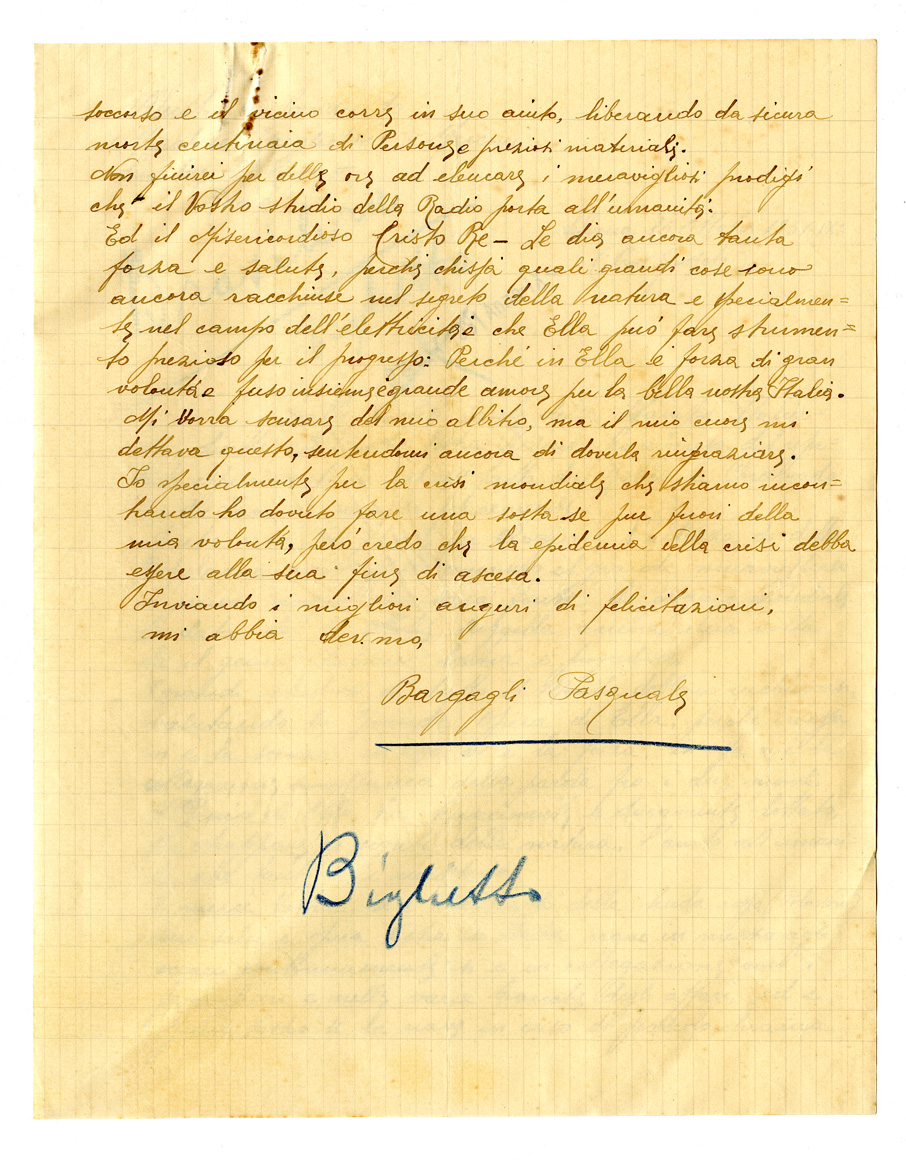 soccorso e il vicino corre in suo aiuto, liberando da sicura
morte centinaia di Persone e preziosi materiali.
Non finirei per delle ore ad elencare i meravigliosi prodigi
che il Vostro studio della Radio porta all'umanitá.
Ed il Misericordioso Cristo Re - Le dia ancora tanta
forza e salute, perché chissá quali grandi cose sono
ancora racchiuse nel segreto della natura e specialmen=
te nel campo dell'elettricitá e che Ella puó fare strumen=
to prezioso per il progresso: Perché in Ella é forza di gran
volontá e fuso insieme é grande amore per la bella nostra Italia.
Mi vorra scusare del mio albitro, ma il mio cuore mi
dettava questo, sentendomi ancora di doverla ringraziare.
Io specialmente per la crisi mondiale che stiamo incon=
trando ho dovuto fare una sosta se pur fuori della
mia volontá, peró credo che la epidemia della crisi debba
essere alla sua fine di ascesa.
Inviando i migliori auguri di felicitazioni,
mi abbia dev.mo,
Bargagli Pasquale
Biglietto